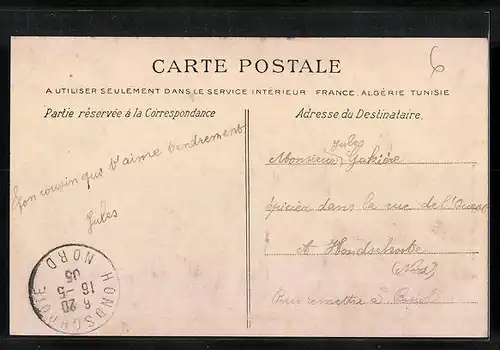 6
CARTE POSTALE
A UTILISER SEULEMENT DANS LE SERVICE INTÉRIEUR FRANCE, ALGÉRIE TUNISIE
Partie réservée à la Correspondance
Adresse du Destinataire.
Ton cousin qui t'aime tendrement
Jules
Jules
Monsieur
épicier dans la rue de l'Ouest
A Hondschoote
(Nord)
Pour remettre à
HONDSCHOOTE
NORD
6 20
16 - 5
05